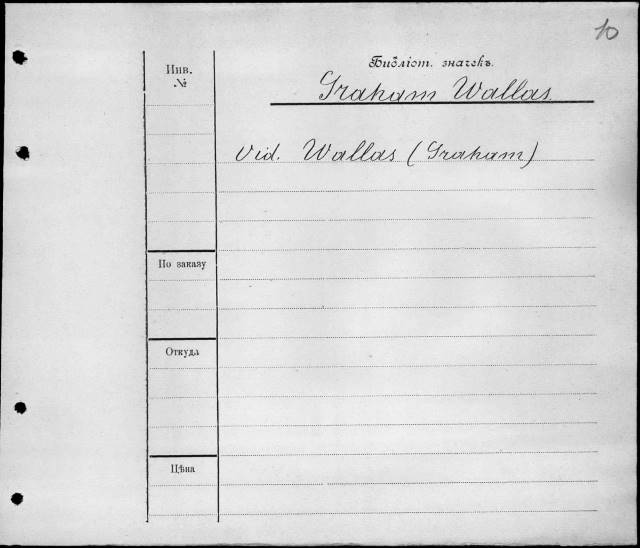 10
Библіот. значекъ.
Graham Wallas
Инв.
№
Vid. Wallas (Graham)
По заказу
Откуда
Цѣна